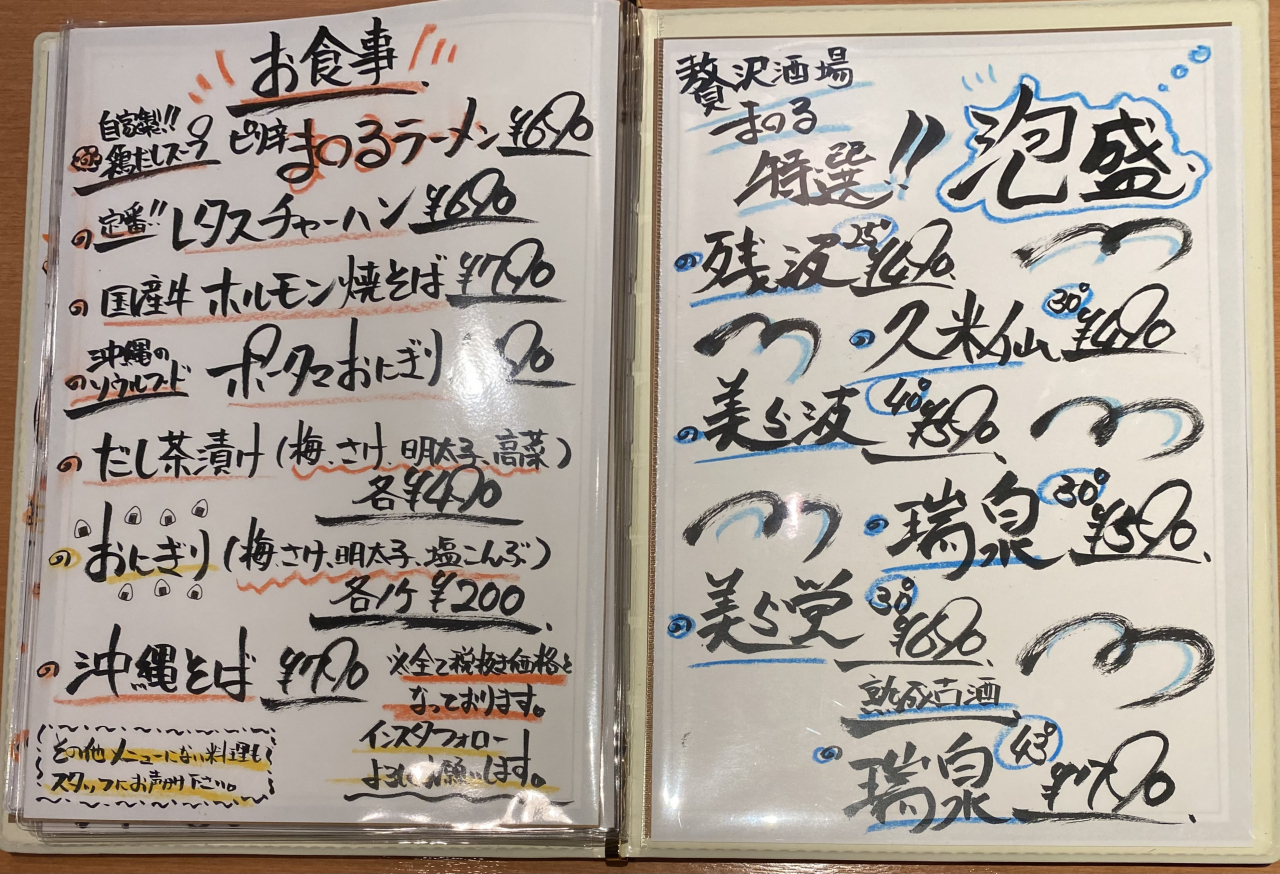 お食事
自家製!!
鶏だしスープ ピリ辛まのるラーメン ¥690
定番!! レタスチャーハン ¥690
国産牛 ホルモン焼そば ¥790
沖縄の
ソウルフード ポークタマおにぎり 90
だし茶漬け (梅、さけ、明太子、高菜)
各¥490
おにぎり (梅、さけ、明太子、塩こんぶ)
各1ケ ¥200
沖縄そば ¥790
※全て税抜き価格と
なっております。
その他メニューにない料理も
スタッフにお声掛け下さい。
インスタフォロー
よろしくお願いします。
贅沢酒場
まのる
特選!!
泡盛
残波 25° ¥490
久米仙 30° ¥490
美ら波 40° ¥590
瑞泉 30° ¥590
美ら蛍 30° ¥690
熟成古酒
瑞泉 43° ¥790